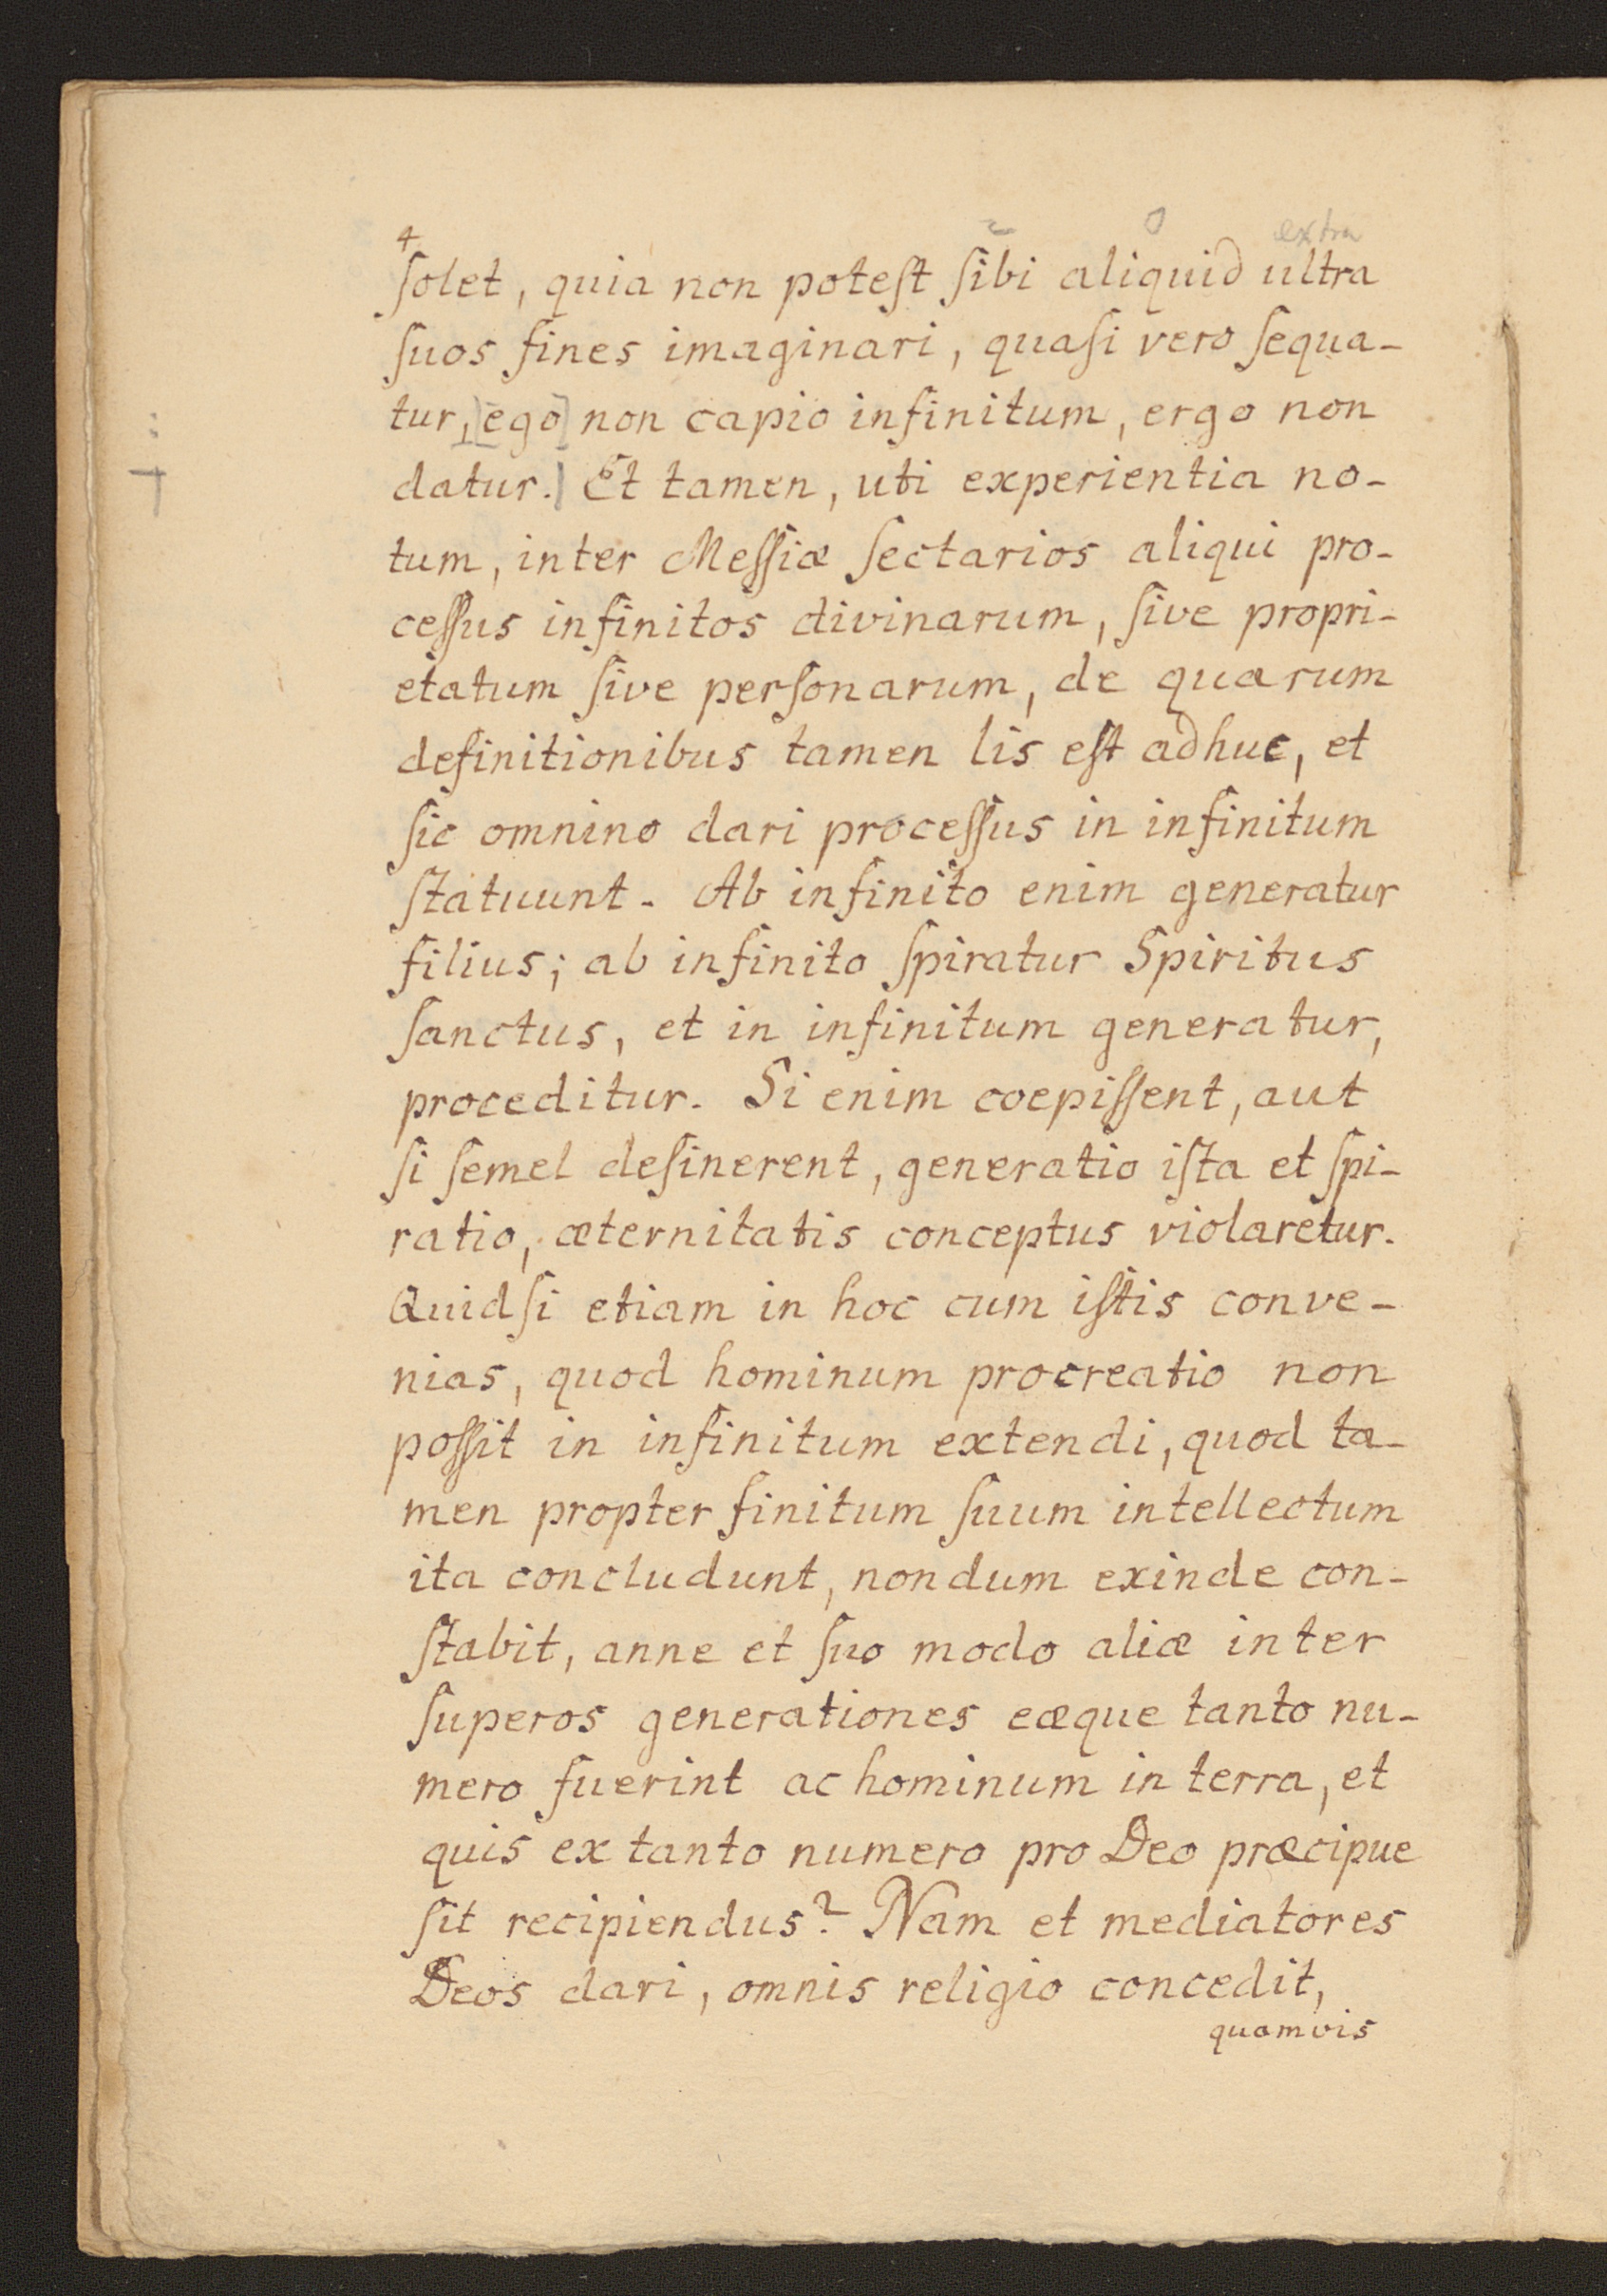 4
extra
ſolet, quia non poteſt ſibi aliquid ultra
ſuos fines imaginari, quaſi vero ſequa-
tur, [ego] non capio infinitum, ergo non
datur.] Et tamen, uti experientia no-
tum, inter Meſſiæ ſectarios aliqui pro-
ceſſus infinitos divinarum, ſive propri-
etatum ſive perſonarum, de quarum
definitionibus tamen lis eſt adhuc, et
ſic omnino dari proceſſus in infinitum
ſtatuunt. Ab infinito enim generatur
filius; ab infinito ſpiratur Spiritus
ſanctus, et in infinitum generatur,
proceditur. Si enim coepiſſent, aut
ſi ſemel deſinerent, generatio iſta et ſpi-
ratio, æternitatis conceptus violaretur.
Quidſi etiam in hoc cum iſtis conve-
nias, quod hominum procreatio non
poſſit in infinitum extendi, quod ta-
men propter finitum ſuum intellectum
ita concludunt, nondum exinde con-
ſtabit, anne et ſuo modo aliæ inter
ſuperos generationes eæque tanto nu-
mero fuerint ac hominum in terra, et
quis ex tanto numero pro Deo præcipue
ſit recipiendus? Nam et mediatores
Deos dari, omnis religio concedit,
quamvis